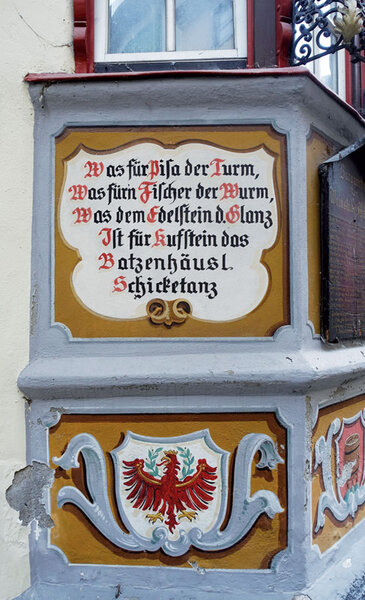 Was für Pisa der Turm,
Was für'n Fischer der Wurm,
Was dem Edelstein d. Glanz
Ist für Kufstein das
Batzenhäusl
Schicketanz